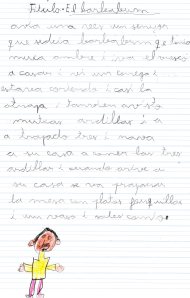 Titulo-El barlenbum
avia una ves un señor
que sedia barlenbum que tenia
muca ambre i va el bosco
a casar i vi un conego i
estava corendo i casi lo
atrapa i tanvien avisto
mucas ardillas i a
a trapado tres i nava
a su casa a comer las tres
ardillas i cuando arive a
su casa se va preparar
la mesa un platos
i un vaso i